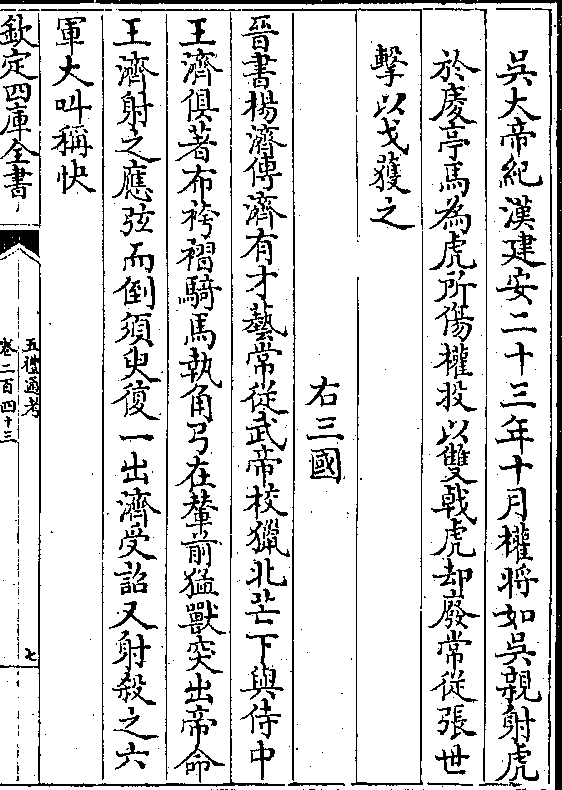 吳大帝紀漢建安二十三年十月權將如吳親射虎
於慶亭馬為虎所傷權投以雙戟虎却廢常從張世
擊以戈獲之
右三國
晉書楊濟傳濟有才藝常從武帝校獵北芒下與侍中
王濟俱著布袴褶騎馬執角弓在輦前猛獸突出帝命
王濟射之應弦而倒須臾復一出濟受詔又射殺之六
軍大叫稱快
欽定四庫全書
五禮通考
卷二百四十三
七